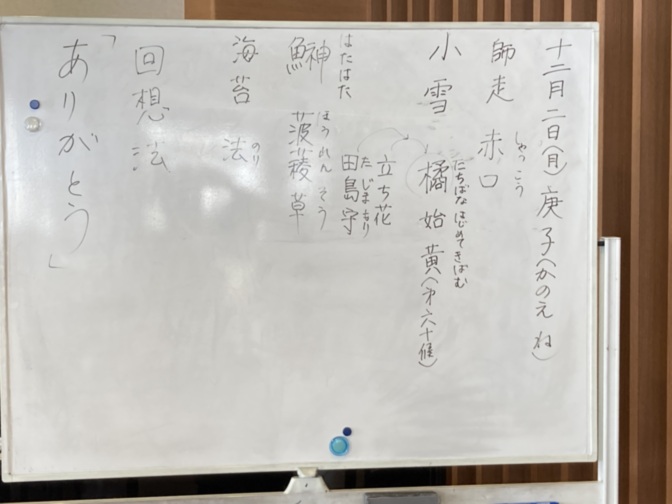 十二月二日(月)庚子(かのえ ね)
師走 赤口
しゃっこう
小雪 橘始黄(才六十候)
たちばな はじめて きばむ
立ち花
田島守
た じま もり
はたはた
鰰 菠薐草
ほうれんそう
海苔 法
のり
回想法
「ありがとう」